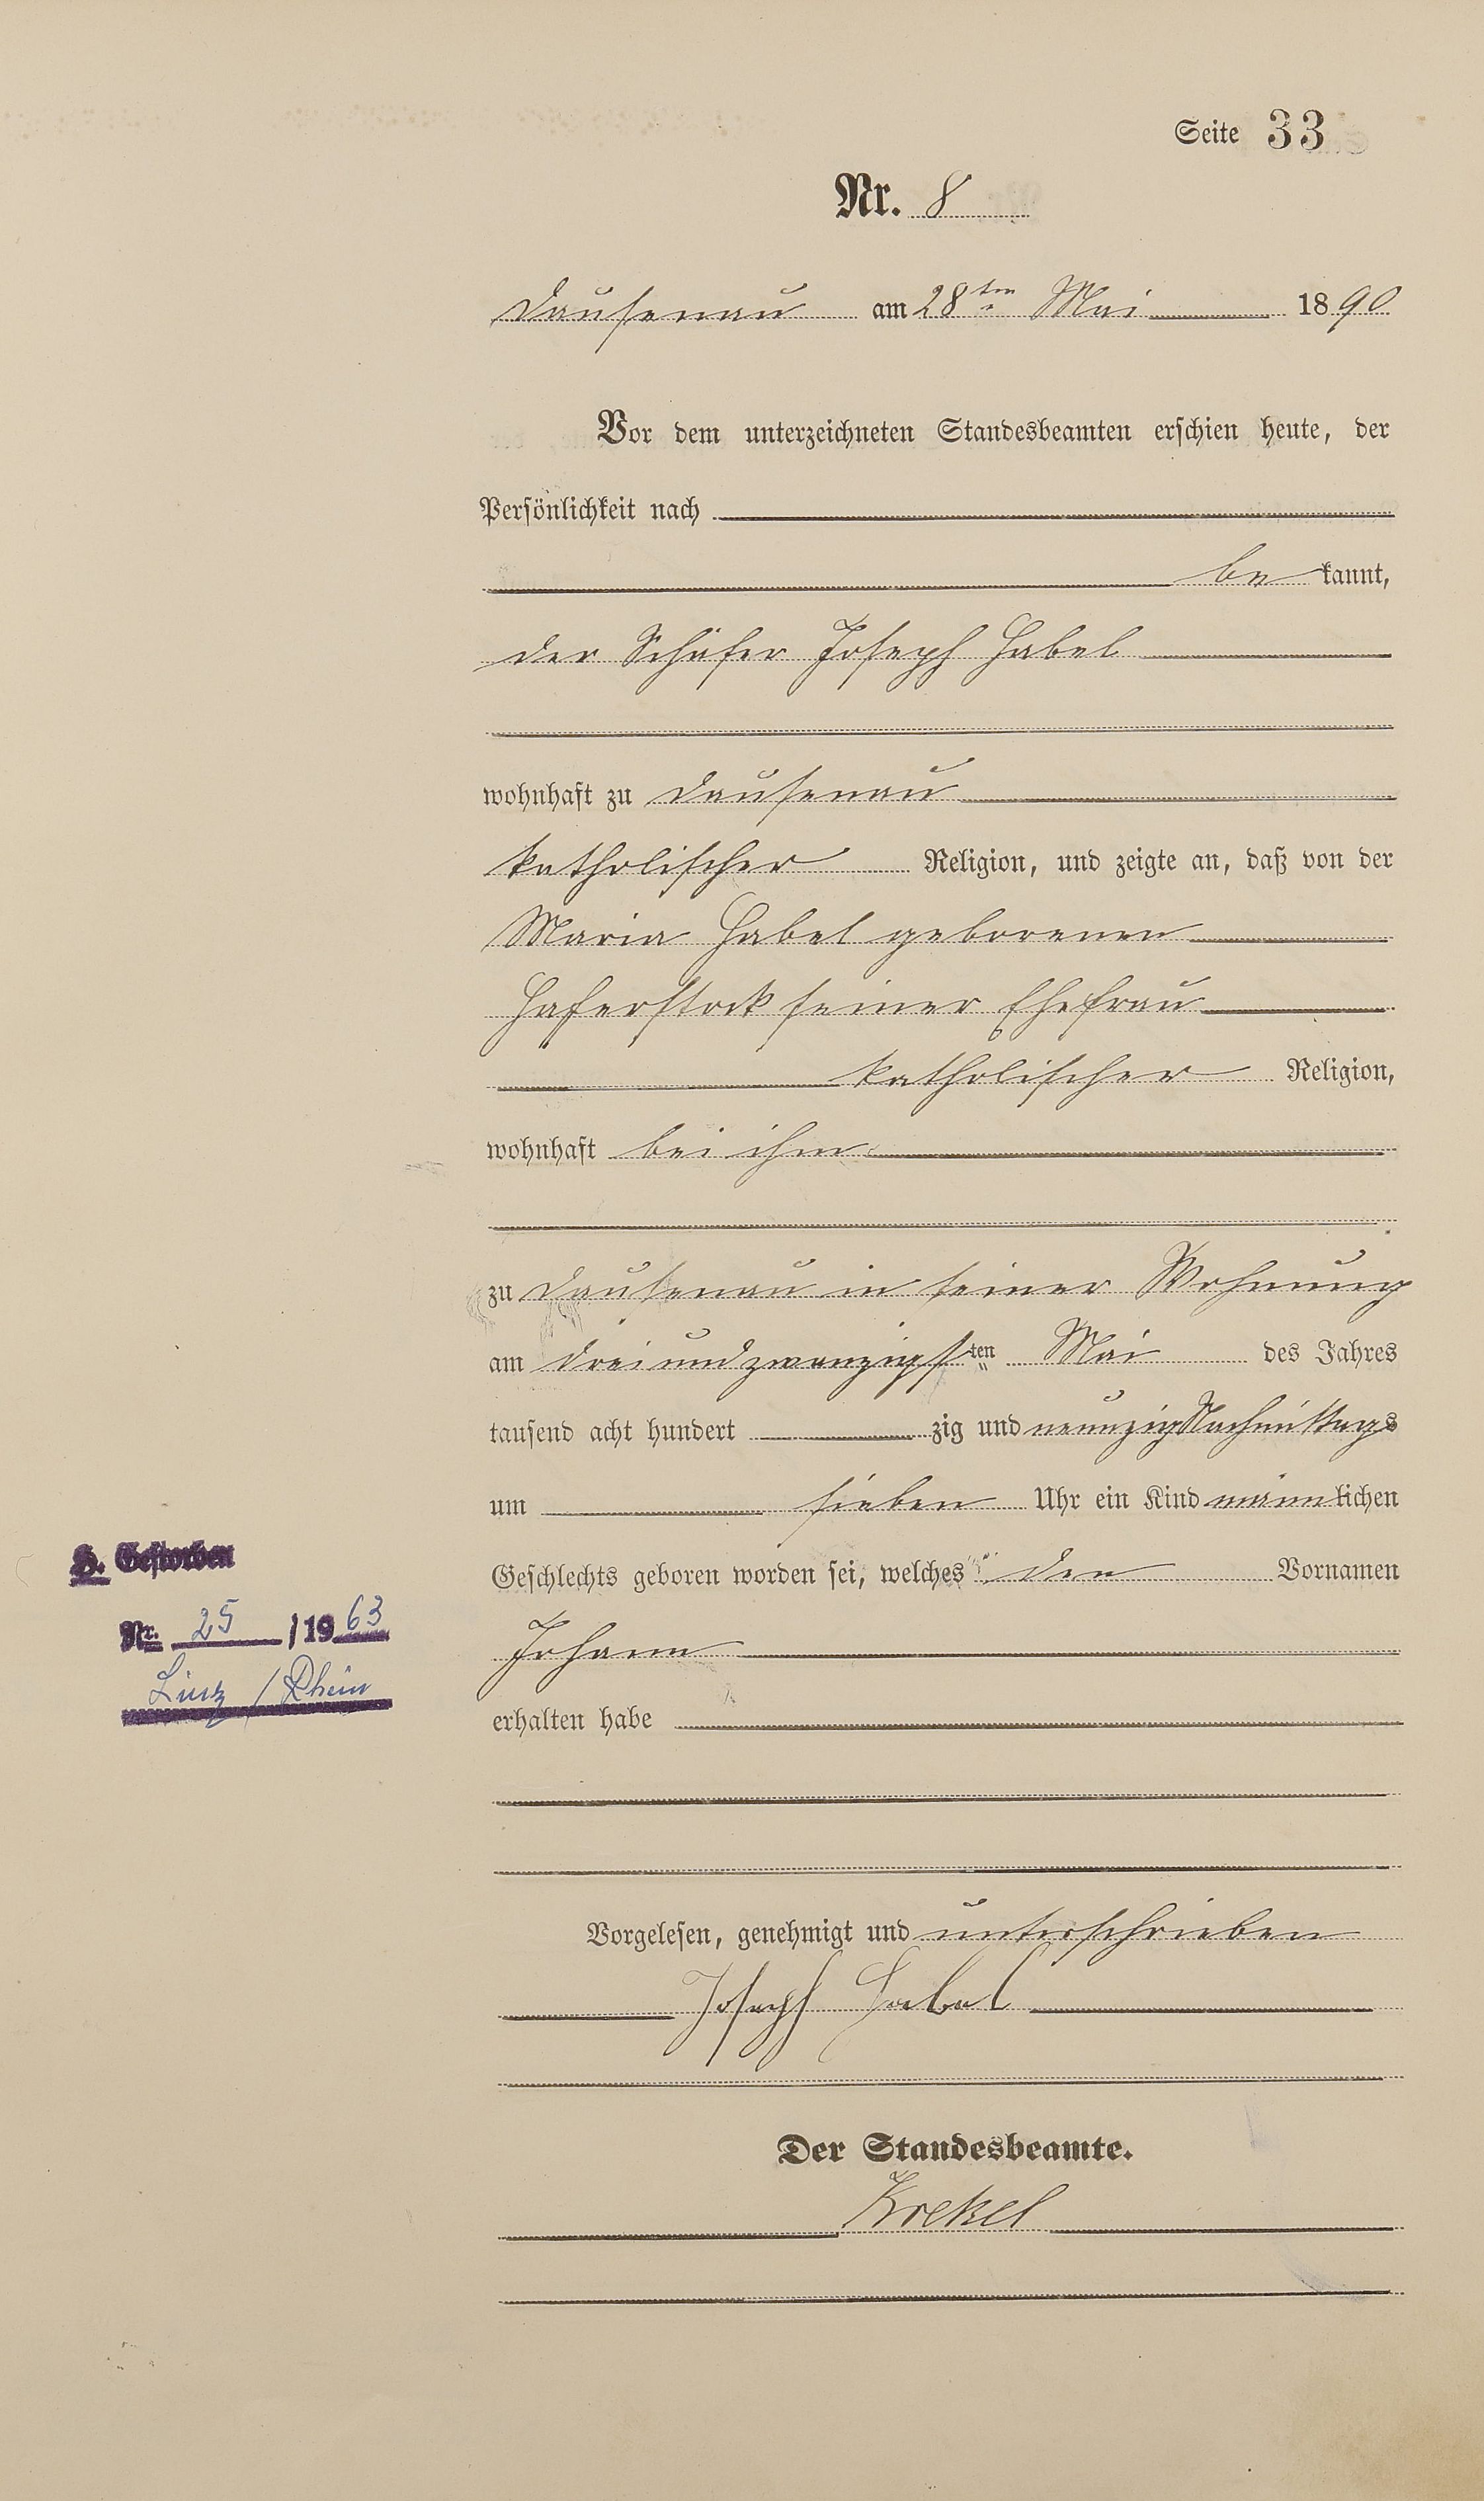 Seite 33
Nr. 8
Dausenau am 28ten Mai 1890
Vor dem unterzeichneten Standesbeamten erschien heute, der
Persönlichkeit nach
be kannt,
der Schäfer Joseph Habel
wohnhaft zu Dausenau
katholischer Religion, und zeigte an, daß von der
Maria Habel geborenen
Haferstock seiner Ehefrau
katholischer Religion,
wohnhaft bei ihm
zu Dausenau in seiner Wohnung
am dreiundzwanzigsten Mai des Jahres
tausend acht hundert zig und neunzig Nachmittags
um sieben Uhr ein Kind männlichen
Geschlechts geboren worden sei, welches den Vornamen
Johann
erhalten habe
Vorgelesen, genehmigt und unterschrieben
Joseph Habel
Der Standesbeamte.
Krekel
H. Gestorben
Nr. 25 / 19 63
Linz / Rhein